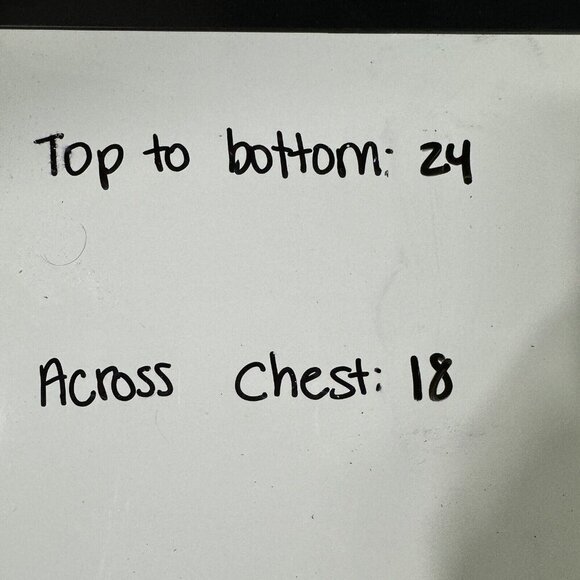 Top to bottom: 24
Across Chest: 18